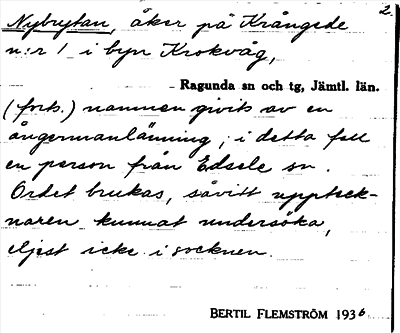 2.
Nybrytan, åker på Krångede
n:r 1 i byn Krokvåg,
Ragunda sn och tg, Jämtl. län.
(forts.) namnen givits av en
ångermanlänning, i detta fall
en person från Edsele sn.
Ordet brukas, såvitt uppteck-
naren kunnat undersöka,
eljest icke i socknen.
BERTIL FLEMSTRÖM 1936